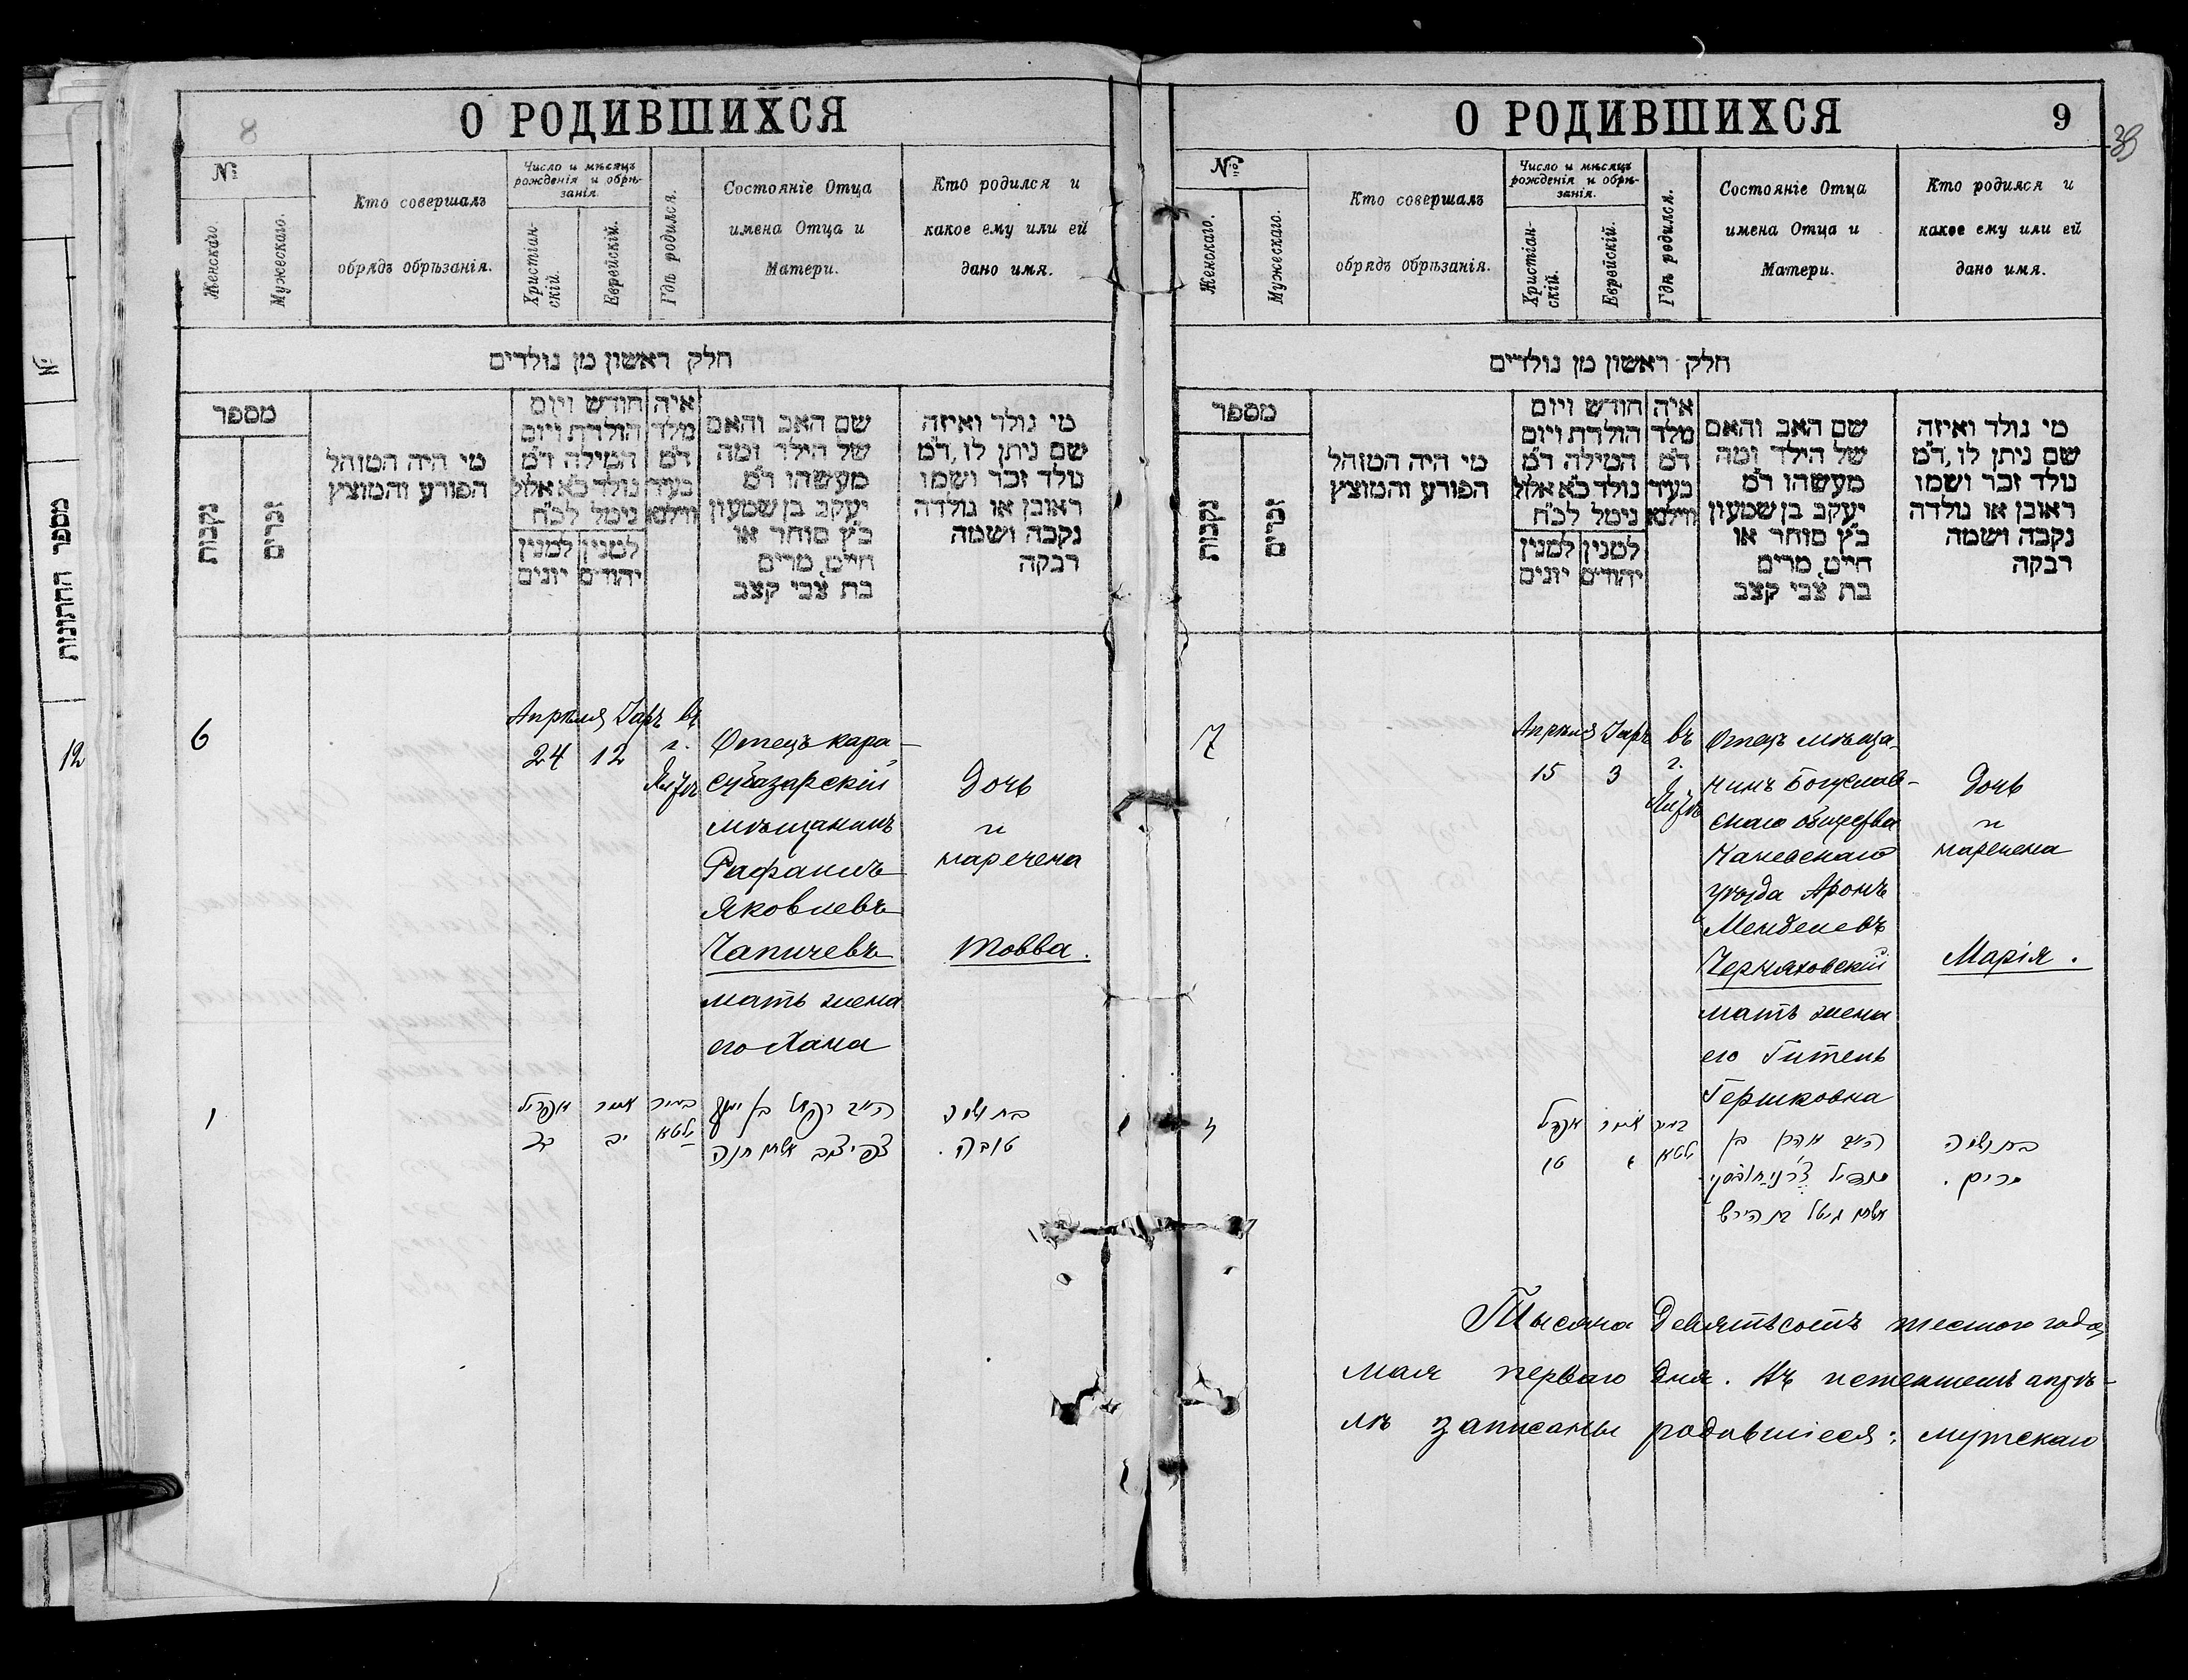 О РОДИВШИХСЯ
8
№
Женскаго.
Мужескаго.
Кто совершалъ
обрядъ обрѣзанія.
Число и мѣсяцъ
рожденія и обрѣ-
занія.
Христіан-
скій.
Еврейскій.
Гдѣ родился.
Состояніе Отца
имена Отца и
Матери.
Кто родился и
какое ему или ей
дано имя.
חלק ראשון מן נולדים
מספר
נקבות
זכרים
מי היה המוהל
הפורע והמוצץ
חודש ויום
הולדת ויום
המילה ד״מ
נולד כ״א אלול
נימל לכ״ח
למנין
יונים
למנין
יהודים
איה
מלד
ד״מ
בעיר
ווילנא
שם האב והאם
של הילד ומה
מעשהו ד״מ
יעקב בן שמעון
כ״ץ סוחר או
חייט, מרים
בת צבי קצב
מי נולד ואיזה
שם ניתן לו, ד״מ
נולד זכר ושמו
ראובן או נולדה
נקבה ושמה
רבקה
6
Апрѣля Іаръ въ
24 12 г.
Ялтѣ
Отецъ кара-
субазарскій
мѣщанинъ
Рафаилъ
Яковлевъ
Чапичевъ
мать жена
его Хана
Дочь
и
наречена
Товва.
אפריל
כד
אייר
יב
בעיר
ילטא
בת ושמה
טובה.
О РОДИВШИХСЯ
9
38
№
Женскаго.
Мужескаго.
Кто совершалъ
обрядъ обрѣзанія.
Число и мѣсяцъ
рожденія и обрѣ-
занія.
Христіан-
скій.
Еврейскій.
Гдѣ родился.
Состояніе Отца
имена Отца и
Матери.
Кто родился и
какое ему или ей
дано имя.
חלק ראשון מן נולדים
מספר
נקבות
זכרים
מי היה המוהל
הפורע והמוצץ
חודש ויום
הולדת ויום
המילה ד״מ
נולד כ״א אלול
נימל לכ״ח
למנין
יונים
למנין
יהודים
איה
מלד
ד״מ
בעיר
ווילנא
שם האב והאם
של הילד ומה
מעשהו ד״מ
יעקב בן שמעון
כ״ץ סוחר או
חייט, מרים
בת צבי קצב
מי נולד ואיזה
שם ניתן לו, ד״מ
נולד זכר ושמו
ראובן או נולדה
נקבה ושמה
רבקה
7
Апрѣля Іаръ въ
15 3 г.
Ялтѣ
Отецъ мѣща-
нинъ Богуслав-
скаго общества
Каневскаго
уѣзда Аронъ
Менделевъ
Черняховскій
мать жена
его Гитель
Гершковна
Дочь
и
наречена
Марія.
אפריל
טו
אייר
ג
בעיר
ילטא
אהרן בן
מענדיל
אשתו גיטל בת הירש
בת ושמה
מרים.
Тысяча девятьсотъ шестого года,
мая перваго дня. Въ истекшемъ апрѣ-
лѣ записаны родившіеся: мужскаго
מספר החתונות
№
12